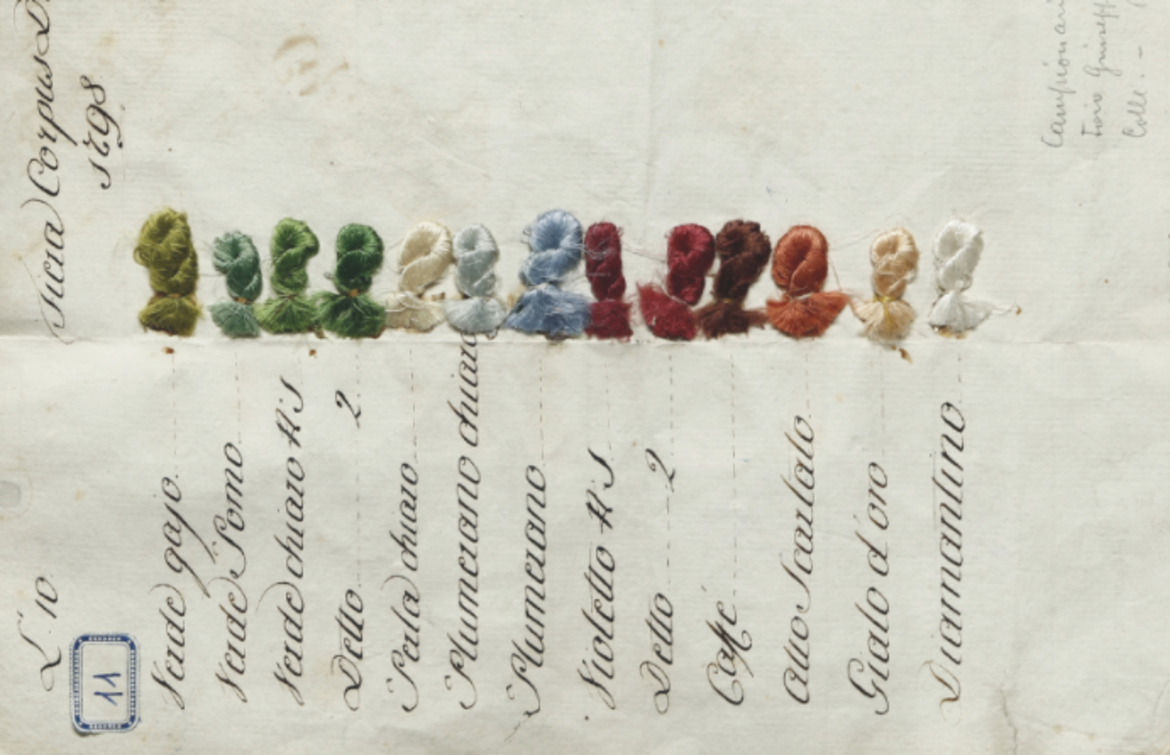 L' 10
Corpus D
1798
11
Verde gajo
Verde Pomo
Verde chiaro N.1
Detto 2
Perla chiaro
Plumerano chiaro
Plumerano
Violetto N.1
Detto 2
Caffè
Atto Scarlato
Gialo d'oro
Diamantino
Colle. -